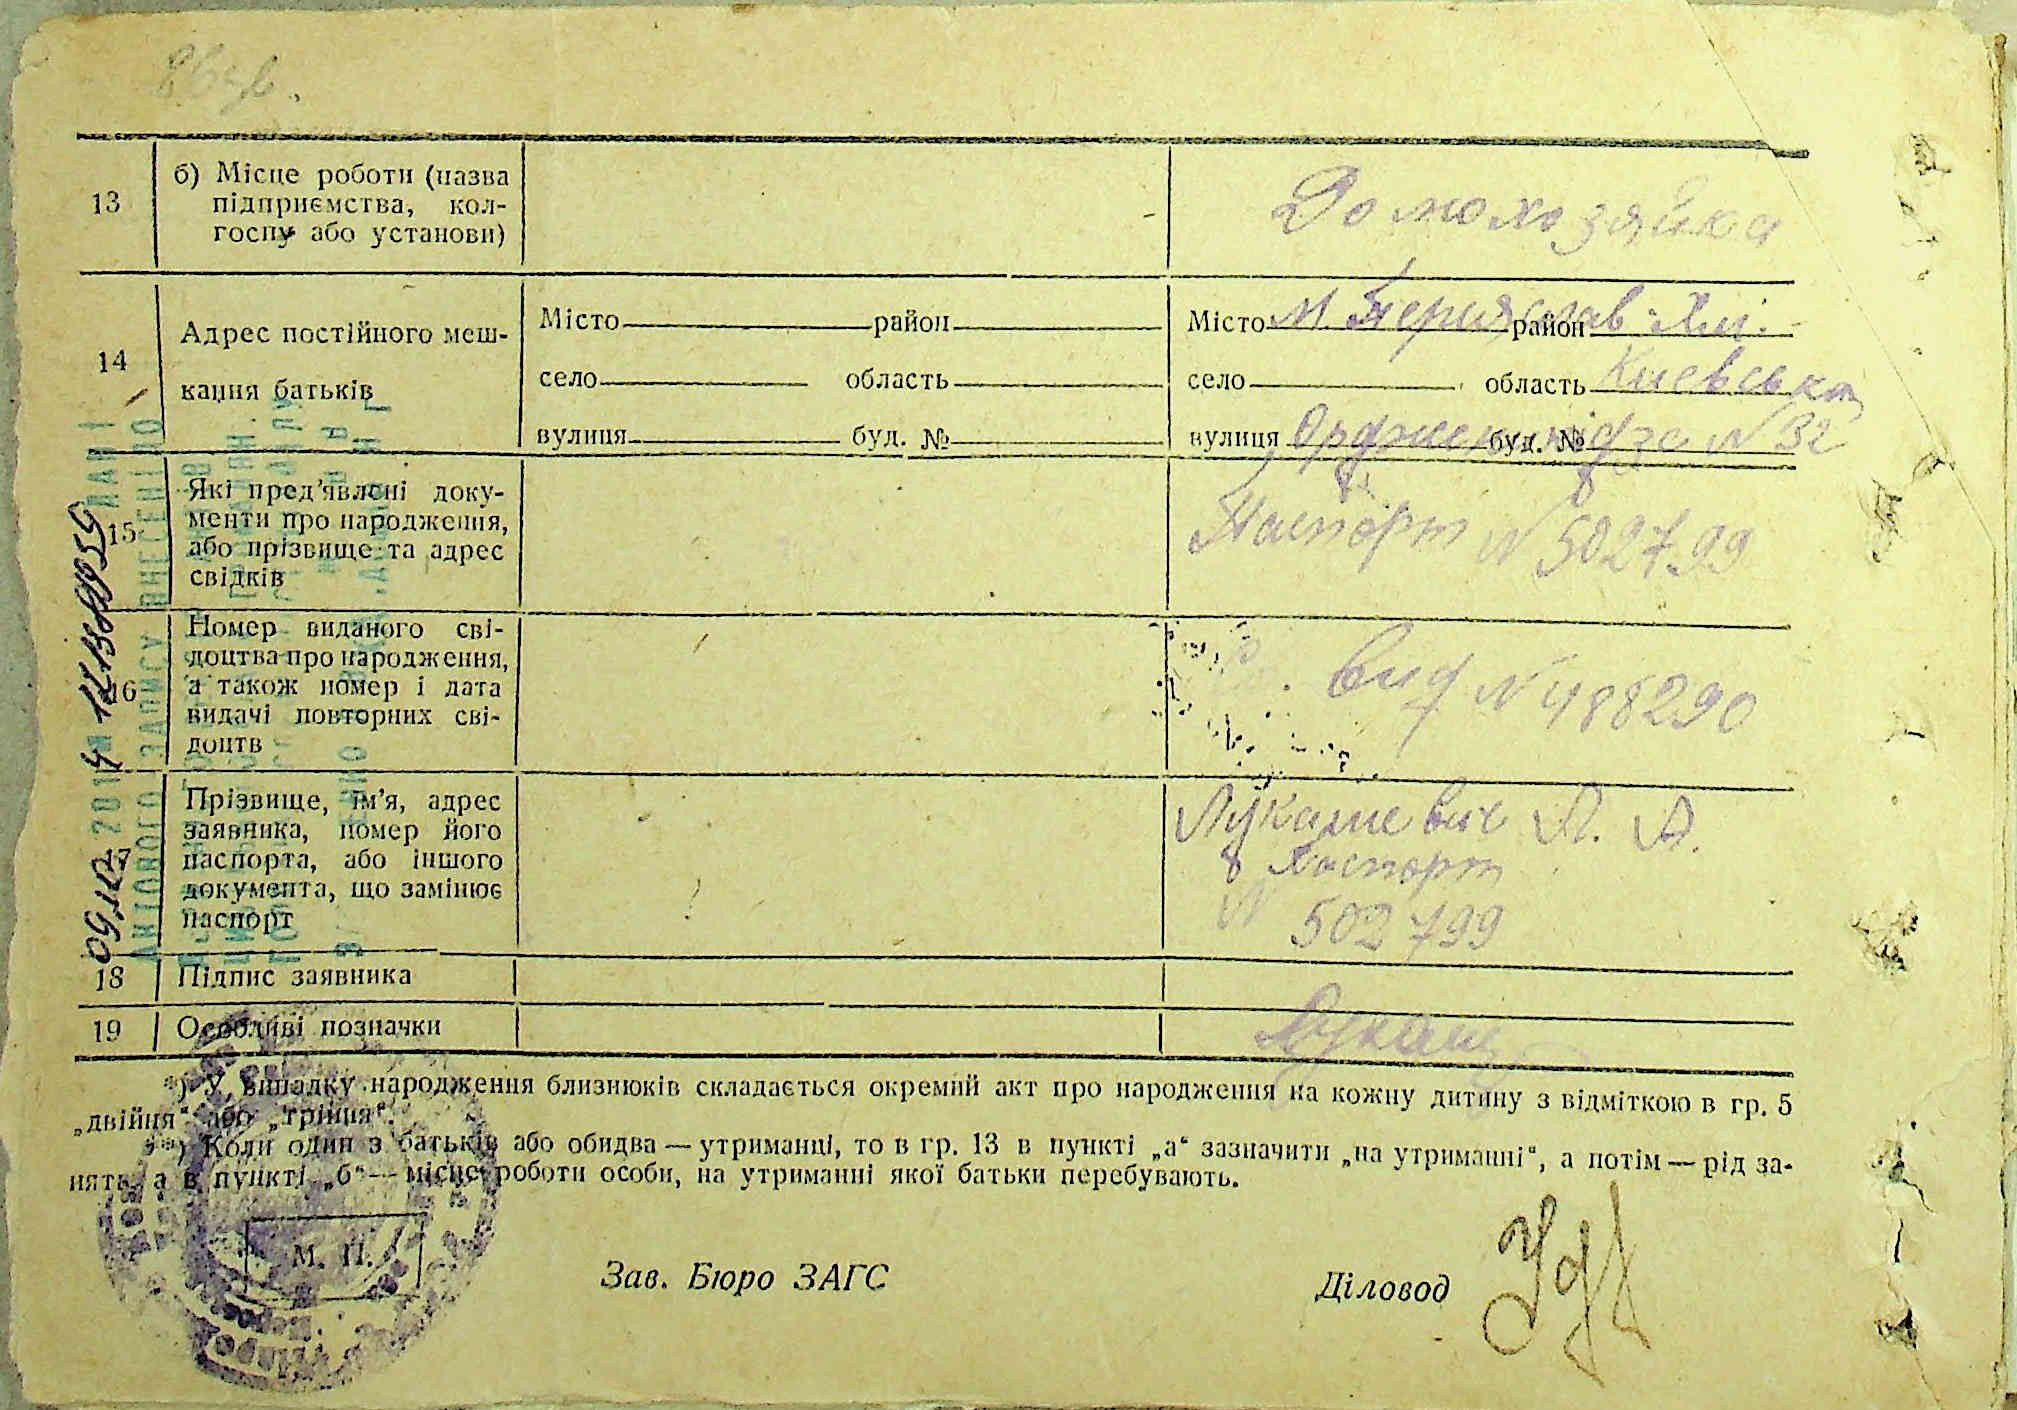 86 зв.
13
б) Місце роботи (назва
підприємства, кол-
госпу або установи)
Домохозяйка
14
Адрес постійного меш-
кання батьків
Місто район
село область
вулиця буд. №
Місто м. Переяслав-Хм. район
село область Киевська
вулиця Орджоникідзе буд. № N 32
15
Які пред'явлені доку-
менти про народження,
або прізвище та адрес
свідків
Паспорт N 502799
16
Номер виданого сві-
доцтва про народження,
а також номер і дата
видачі повторних сві-
доцтв
вид N 488290
17
Прізвище, ім'я, адрес
заявника, номер його
паспорта, або іншого
документа, що замінює
паспорт
Лукашевич Л. А.
Паспорт
N 502799
18
Підпис заявника
19
Особливі позначки
Лукаш
*) У випадку народження близнюків складається окремий акт про народження на кожну дитину з відміткою в гр. 5
„двійня“ або „трійня“.
**) Коли один з батьків або обидва — утриманці, то в гр. 13 в пункті „а“ зазначити „на утриманні“, а потім — рід за-
нять, а в пункті „б“ — місце роботи особи, на утриманні якої батьки перебувають.
М. П.
Зав. Бюро ЗАГС
Діловод
АКТОВОГО ЗАПИСУ ВНЕСЕНІ ДО